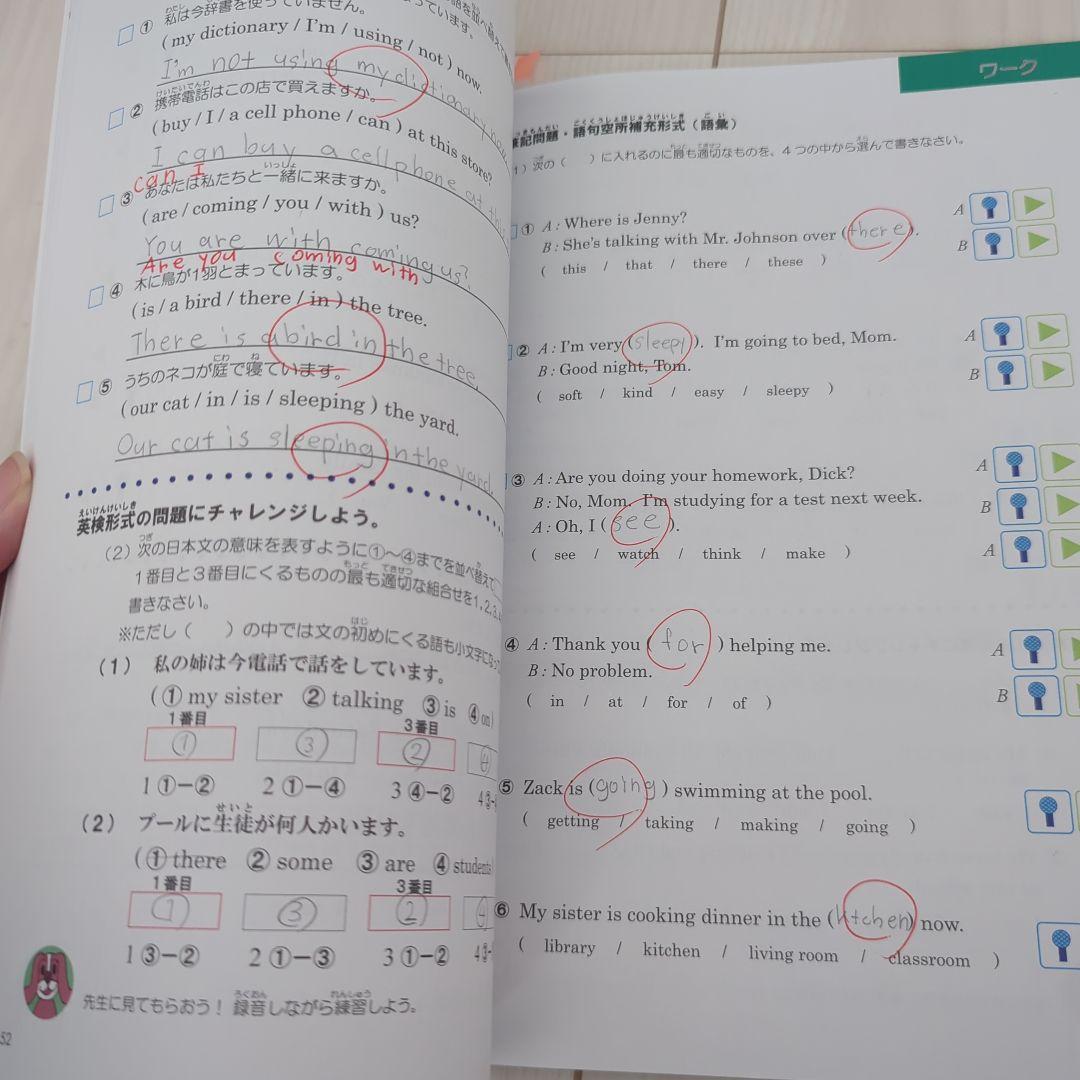 ① 私は今辞書を使っていません。
( my dictionary / I'm / using / not ) now.
I'm not using my dictionary now.
② 携帯電話はこの店で買えますか。
( buy / I / a cell phone / can ) at this store?
I can buy a cell phone at this
can I
③ あなたは私たちと一緒に来ますか。
( are / coming / you / with ) us?
You are with coming us?
Are you coming with
④ 木に鳥が1羽とまっています。
( is / a bird / there / in ) the tree.
There is a bird in the tree.
⑤ うちのネコが庭で寝ています。
( our cat / in / is / sleeping ) the yard.
Our cat is sleeping in the yard.
英検形式の問題にチャレンジしよう。
(2) 次の日本文の意味を表すように①〜④までを並べ替えて
1番目と3番目にくるものの最も適切な組合せを1, 2, 3,
書きなさい。
※ただし( )の中では文の初めにくる語も小文字になっ
(1) 私の姉は今電話で話をしています。
( ① my sister ② talking ③ is ④ on
1番目 3番目
① ③ ② ④
1 ①ー② 2 ①ー④ 3 ④ー② 4 ③ー
(2) プールに生徒が何人かいます。
( ① there ② some ③ are ④ students
1番目 3番目
① ③ ② ④
1 ③ー② 2 ①ー③ 3 ①ー② 4 ③ー
先生に見てもらおう! 録音しながら練習しよう。
52
ワーク
筆記問題・語句空所補充形式(語彙)
1) 次の( )に入れるのに最も適切なものを、4つの中から選んで書きなさい。
① A : Where is Jenny? A
B : She's talking with Mr. Johnson over ( there ). B
( this / that / there / these )
② A : I'm very ( sleepy ). I'm going to bed, Mom. A
B : Good night, Tom. B
( soft / kind / easy / sleepy )
③ A : Are you doing your homework, Dick? A
B : No, Mom. I'm studying for a test next week. B
A : Oh, I ( see ). A
( see / watch / think / make )
④ A : Thank you ( for ) helping me. A
B : No problem. B
( in / at / for / of )
⑤ Zack is ( going ) swimming at the pool.
( getting / taking / making / going )
⑥ My sister is cooking dinner in the ( kitchen ) now.
( library / kitchen / living room / classroom )